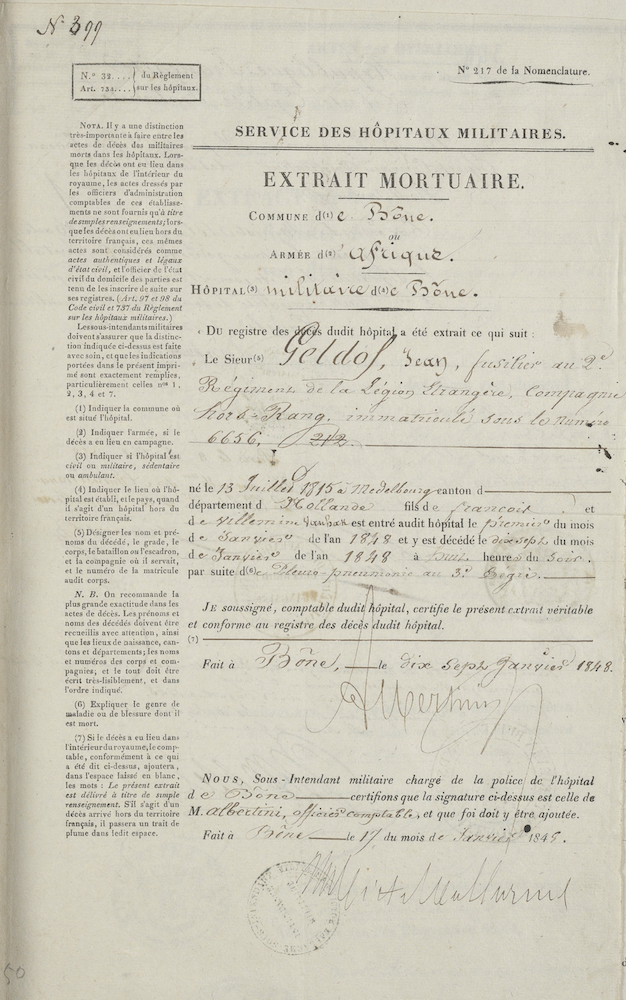 N° 399
N.° 32.... du Règlement
Art. 732.... sur les hôpitaux.
N° 217 de la Nomenclature.
NOTA. Il y a une distinction
très-importante à faire entre les
actes de décès des militaires
morts dans les hôpitaux. Lors-
que les décès ont eu lieu dans
les hôpitaux de l'intérieur du
royaume, les actes dressés par
les officiers d'administration
comptables de ces établisse-
ments ne sont fournis qu'à titre
de simples renseignements; lors-
que les décès ont eu lieu hors du
territoire français, ces mêmes
actes sont considérés comme
actes authentiques et légaux
d'état civil, et l'officier de l'état
civil du domicile des parties est
tenu de les inscrire de suite sur
ses registres. (Art. 97 et 98 du
Code civil et 737 du Règlement
sur les hôpitaux militaires.)
Les sous-intendants militaires
doivent s'assurer que la distinc-
tion indiquée ci-dessus est faite
avec soin, et que les indications
portées dans le présent impri-
mé sont exactement remplies,
particulièrement celles nos 1,
2, 3, 4 et 7.
(1) Indiquer la commune où
est situé l'hôpital.
(2) Indiquer l'armée, si le
décès a eu lieu en campagne.
(3) Indiquer si l'hôpital est
civil ou militaire, sédentaire
ou ambulant.
(4) Indiquer le lieu où l'hô-
pital est établi, et le pays, quand
il s'agit d'un hôpital hors du
territoire français.
(5) Désigner les nom et pré-
noms du décédé, le grade, le
corps, le bataillon ou l'escadron,
et la compagnie où il servait,
et le numéro de la matricule
audit corps.
N. B. On recommande la
plus grande exactitude dans les
actes de décès. Les prénoms et
noms des décédés doivent être
recueillis avec attention, ainsi
que les lieux de naissance, can-
tons et départements; les noms
et numéros des corps et com-
pagnies; et le tout doit être
écrit très-lisiblement, et dans
l'ordre indiqué.
(6) Expliquer le genre de
maladie ou de blessure dont il
est mort.
(7) Si le décès a eu lieu dans
l'intérieur du royaume, le comp-
table, conformément à ce qui
a été dit ci-dessus, ajoutera,
dans l'espace laissé en blanc,
les mots : Le présent extrait
est délivré à titre de simple
renseignement. S'il s'agit d'un
décès arrivé hors du territoire
français, il passera un trait de
plume dans ledit espace.
SERVICE DES HÔPITAUX MILITAIRES.
EXTRAIT MORTUAIRE.
COMMUNE d(1)e Bône.
ou
ARMÉE d(2)'afrique.
HÔPITAL(3) militaire d(4)e Bône.
Du registre des décès dudit hôpital a été extrait ce qui suit :
Le Sieur(5) Geldof, Jean, fusilier au 2e
Régiment de la Légion Etrangère, Compagnie
hors-Rang, immatriculé sous le Numéro
6656. 212.
né le 13 Juillet 1815 à Medelbourg canton d
département d Hollande fils de francois et
de Villemin est entré audit hôpital le premier du mois
de Janvier de l'an 1848 et y est décédé le dix sept du mois
de Janvier de l'an 1848 à huit heures du soir.
par suite d(6)e Pleuro-pneumonie au 3e Degré.
JE soussigné, comptable dudit hôpital, certifie le présent extrait véritable
et conforme au registre des décès dudit hôpital.
(7)
Fait à Bône, le dix sept Janvier 1848.
Albertini
NOUS, Sous-Intendant militaire chargé de la police de l'hôpital
de Bône certifions que la signature ci-dessus est celle de
M. Albertini, officier comptable, et que foi doit y être ajoutée.
Fait à Bône le 17 du mois de Janvier 1848.
50